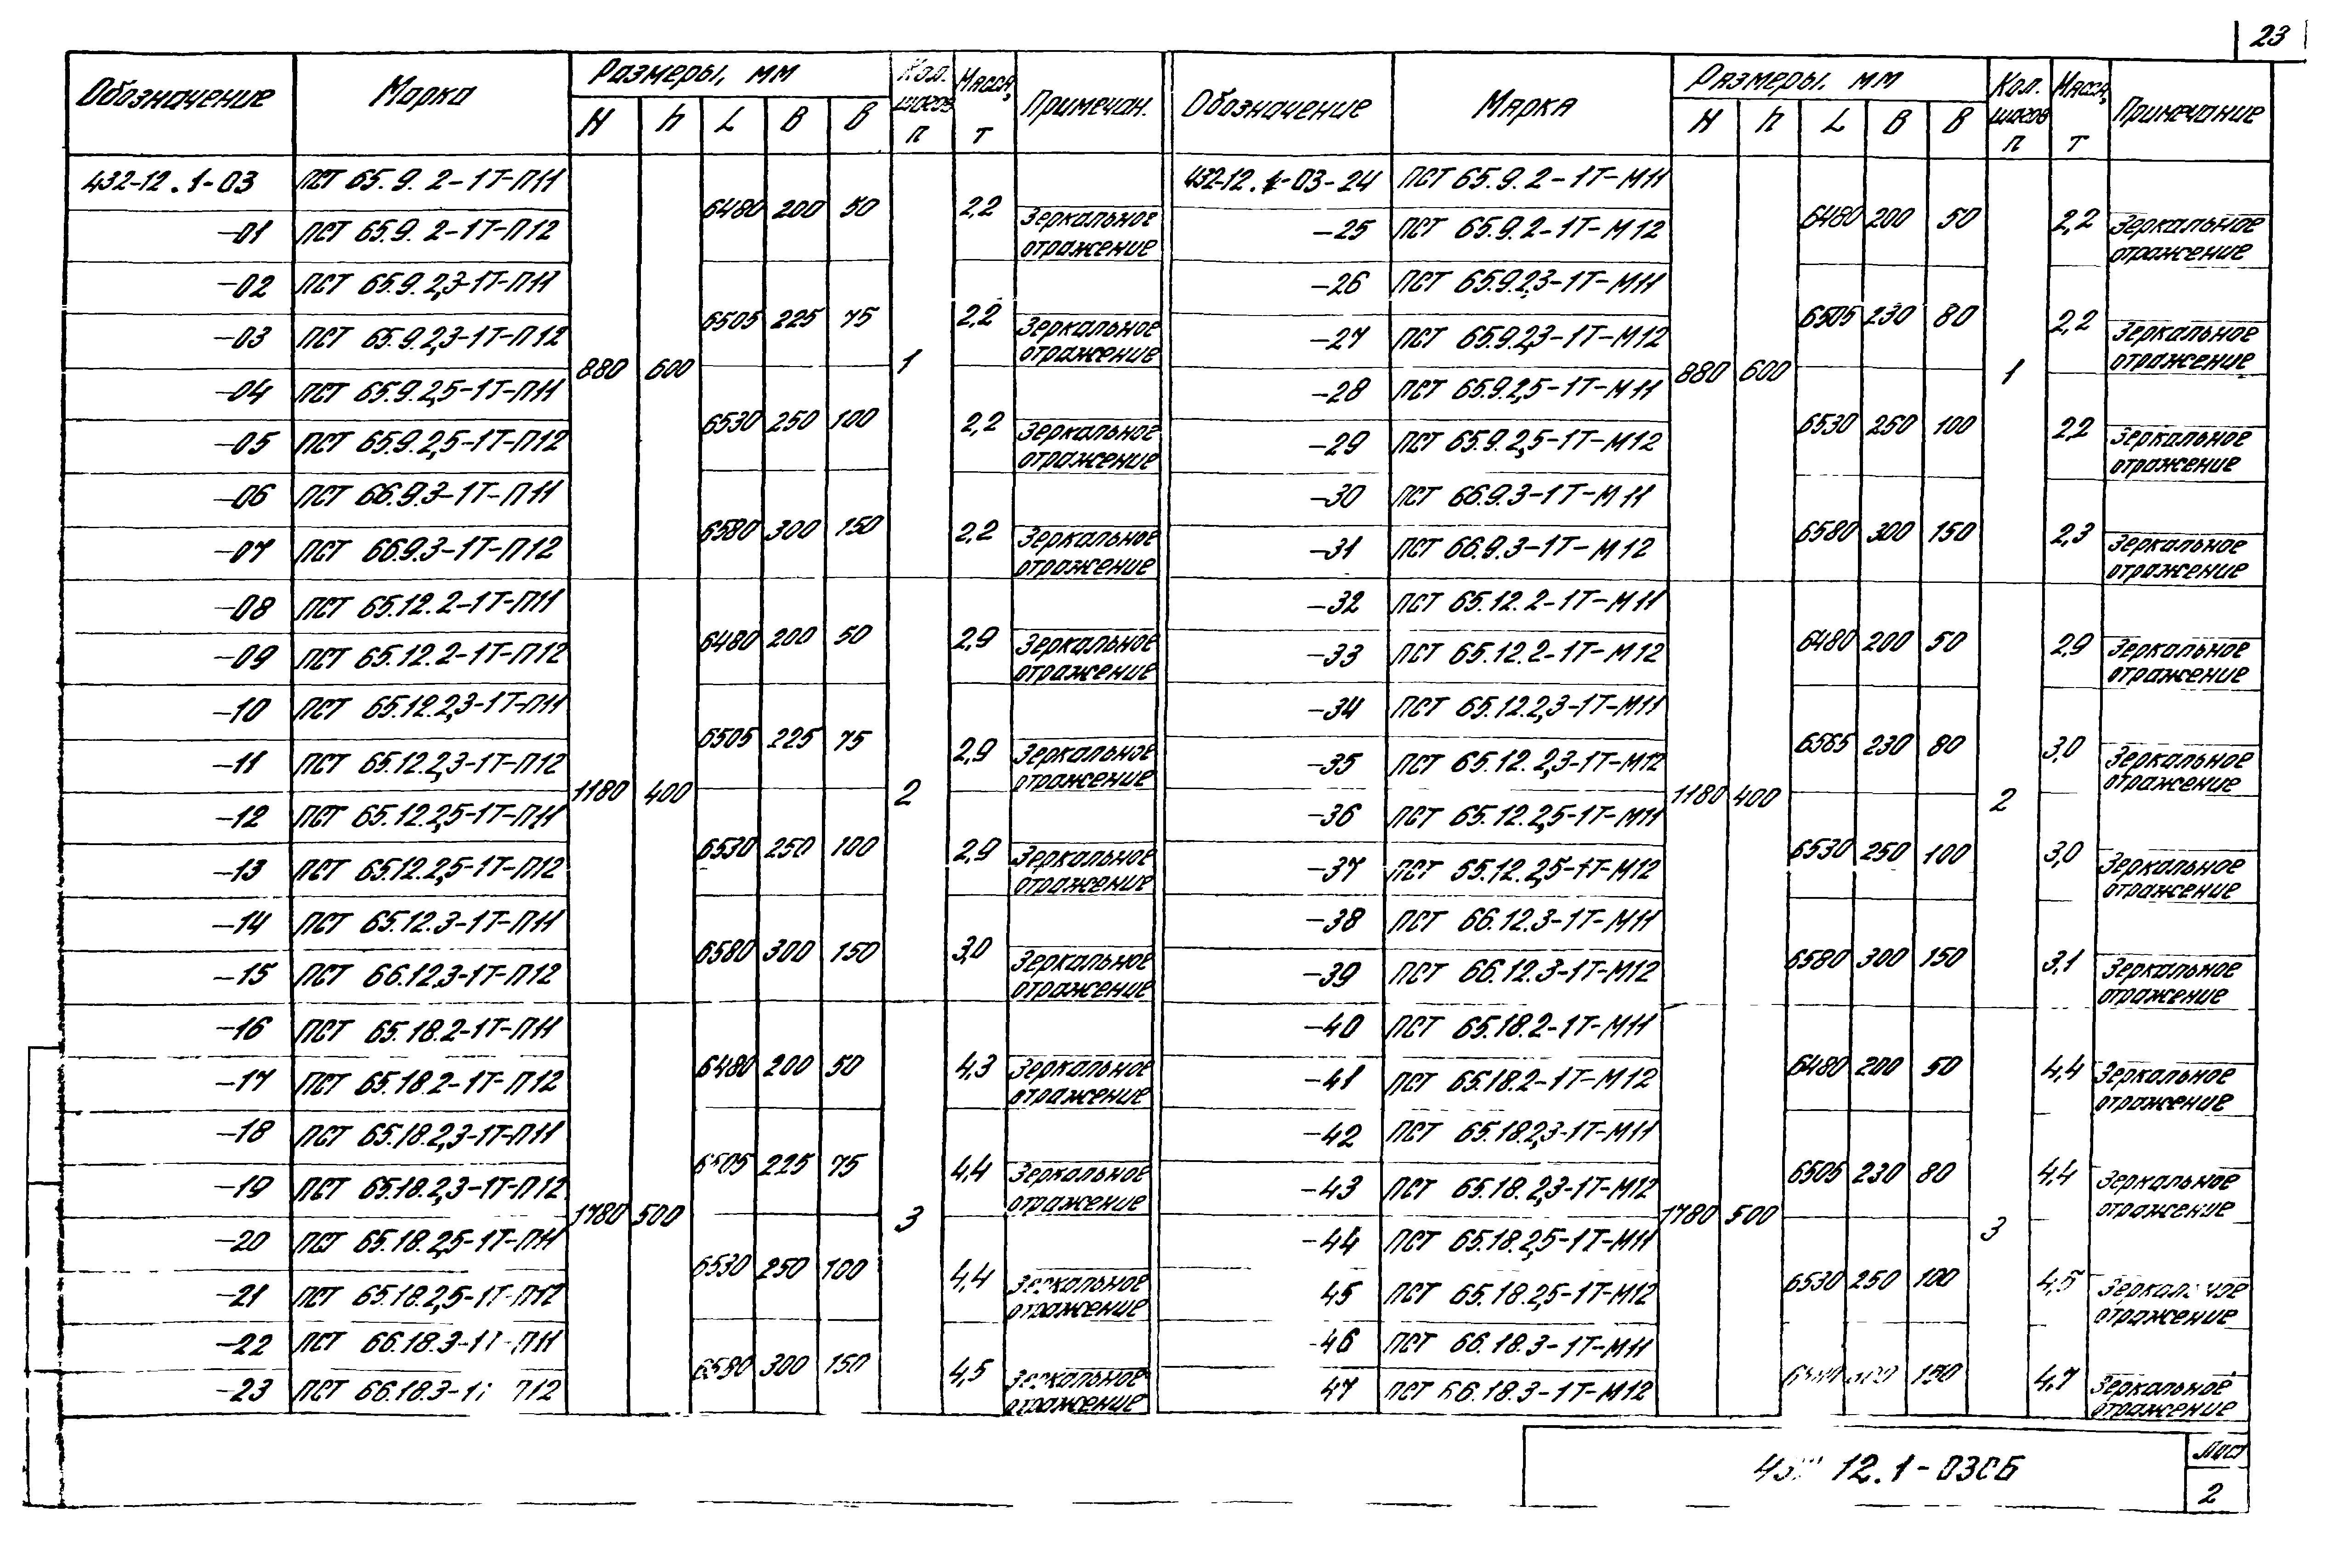 23
Обозначение Марка Размеры, мм Кол. шагов п Масса, т Примечан.
H h L B в
432-12.1-03 ПСТ 65.9.2-1Т-П11
-01 ПСТ 65.9.2-1Т-П12 6480 200 50 2,2 Зеркальное отражение
-02 ПСТ 65.9.2,3-1Т-П11
-03 ПСТ 65.9.2,3-1Т-П12 6505 225 75 2,2 Зеркальное отражение
880 600 1
-04 ПСТ 65.9.2,5-1Т-П11
-05 ПСТ 65.9.2,5-1Т-П12 6530 250 100 2,2 Зеркальное отражение
-06 ПСТ 66.9.3-1Т-П11
-07 ПСТ 66.9.3-1Т-П12 6580 300 150 2,2 Зеркальное отражение
-08 ПСТ 65.12.2-1Т-П11
-09 ПСТ 65.12.2-1Т-П12 6480 200 50 2,9 Зеркальное отражение
-10 ПСТ 65.12.2,3-1Т-П11
-11 ПСТ 65.12.2,3-1Т-П12 6505 225 75 2,9 Зеркальное отражение
1180 400 2
-12 ПСТ 65.12.2,5-1Т-П11
-13 ПСТ 65.12.2,5-1Т-П12 6530 250 100 2,9 Зеркальное отражение
-14 ПСТ 65.12.3-1Т-П11
-15 ПСТ 66.12.3-1Т-П12 6580 300 150 3,0 Зеркальное отражение
-16 ПСТ 65.18.2-1Т-П11
-17 ПСТ 65.18.2-1Т-П12 6480 200 50 4,3 Зеркальное отражение
-18 ПСТ 65.18.2,3-1Т-П11
-19 ПСТ 65.18.2,3-1Т-П12 6505 225 75 4,4 Зеркальное отражение
1780 500 3
-20 ПСТ 65.18.2,5-1Т-П11
-21 ПСТ 65.18.2,5-1Т-П12 6530 250 100 4,4 Зеркальное отражение
-22 ПСТ 66.18.3-1Т-П11
-23 ПСТ 66.18.3-1Т П12 6580 300 150 4,5 Зеркальное отражение
Обозначение Марка Размеры, мм Кол. шагов п Масса, т Примечание
H h L B в
432-12.1-03-24 ПСТ 65.9.2-1Т-М11
-25 ПСТ 65.9.2-1Т-М12 6480 200 50 2,2 Зеркальное отражение
-26 ПСТ 65.9.2,3-1Т-М11
-27 ПСТ 65.9.2,3-1Т-М12 6505 230 80 2,2 Зеркальное отражение
880 600 1
-28 ПСТ 65.9.2,5-1Т-М11
-29 ПСТ 65.9.2,5-1Т-М12 6530 250 100 2,2 Зеркальное отражение
-30 ПСТ 66.9.3-1Т-М11
-31 ПСТ 66.9.3-1Т-М12 6580 300 150 2,3 Зеркальное отражение
-32 ПСТ 65.12.2-1Т-М11
-33 ПСТ 65.12.2-1Т-М12 6480 200 50 2,9 Зеркальное отражение
-34 ПСТ 65.12.2,3-1Т-М11
-35 ПСТ 65.12.2,3-1Т-М12 6565 230 80 3,0 Зеркальное отражение
1180 400 2
-36 ПСТ 65.12.2,5-1Т-М11
-37 ПСТ 65.12.2,5-1Т-М12 6530 250 100 3,0 Зеркальное отражение
-38 ПСТ 66.12.3-1Т-М11
-39 ПСТ 66.12.3-1Т-М12 6580 300 150 3,1 Зеркальное отражение
-40 ПСТ 65.18.2-1Т-М11
-41 ПСТ 65.18.2-1Т-М12 6480 200 50 4,4 Зеркальное отражение
-42 ПСТ 65.18.2,3-1Т-М11
-43 ПСТ 65.18.2,3-1Т-М12 6505 230 80 4,4 Зеркальное отражение
1780 500 3
-44 ПСТ 65.18.2,5-1Т-М11
45 ПСТ 65.18.2,5-1Т-М12 6530 250 100 4,5 Зеркальное отражение
-46 ПСТ 66.18.3-1Т-М11
47 ПСТ 66.18.3-1Т-М12 150 4,7 Зеркальное отражение
12.1-03СБ
Лист
2